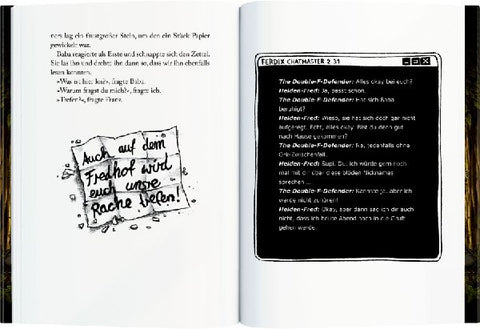 ners lag ein faustgroßer Stein, um den ein Stück Papier
gewickelt war.
Baba reagierte als Erste und schnappte sich den Zettel.
Sie las ihn und drehte ihn dann so, dass wir ihn ebenfalls
lesen konnten.
»Was ist hier los?«, fragte Baba.
»Warum fragst du mich?«, fragte ich.
»Defen?«, fragte Franz.
Auch auf dem
Fredhof wird
euch unsre
Rache Defen!
FERDIX CHATMASTER 2.31
The Double-F-Defender: Alles okay bei euch?
Helden-Fred: Ja, passt schon.
The Double-F-Defender: Hat sich Baba
beruhigt?
Helden-Fred: Wieso, sie hat sich doch gar nicht
aufgeregt. Echt, alles okay. Bist du denn gut
nach Hause gekommen?
The Double-F-Defender: Na, jedenfalls ohne
Ork-Zwischenfall.
Helden-Fred: Supi. Du, ich würde gern noch
mal mit dir über diese blöden Nicknames
sprechen ...
The Double-F-Defender: Kannste ja, aber ich
werde nicht zuhören!
Helden-Fred: Okay, aber dann sag ich dir auch
nicht, dass ich heute Abend noch in die Gruft
gehen werde.